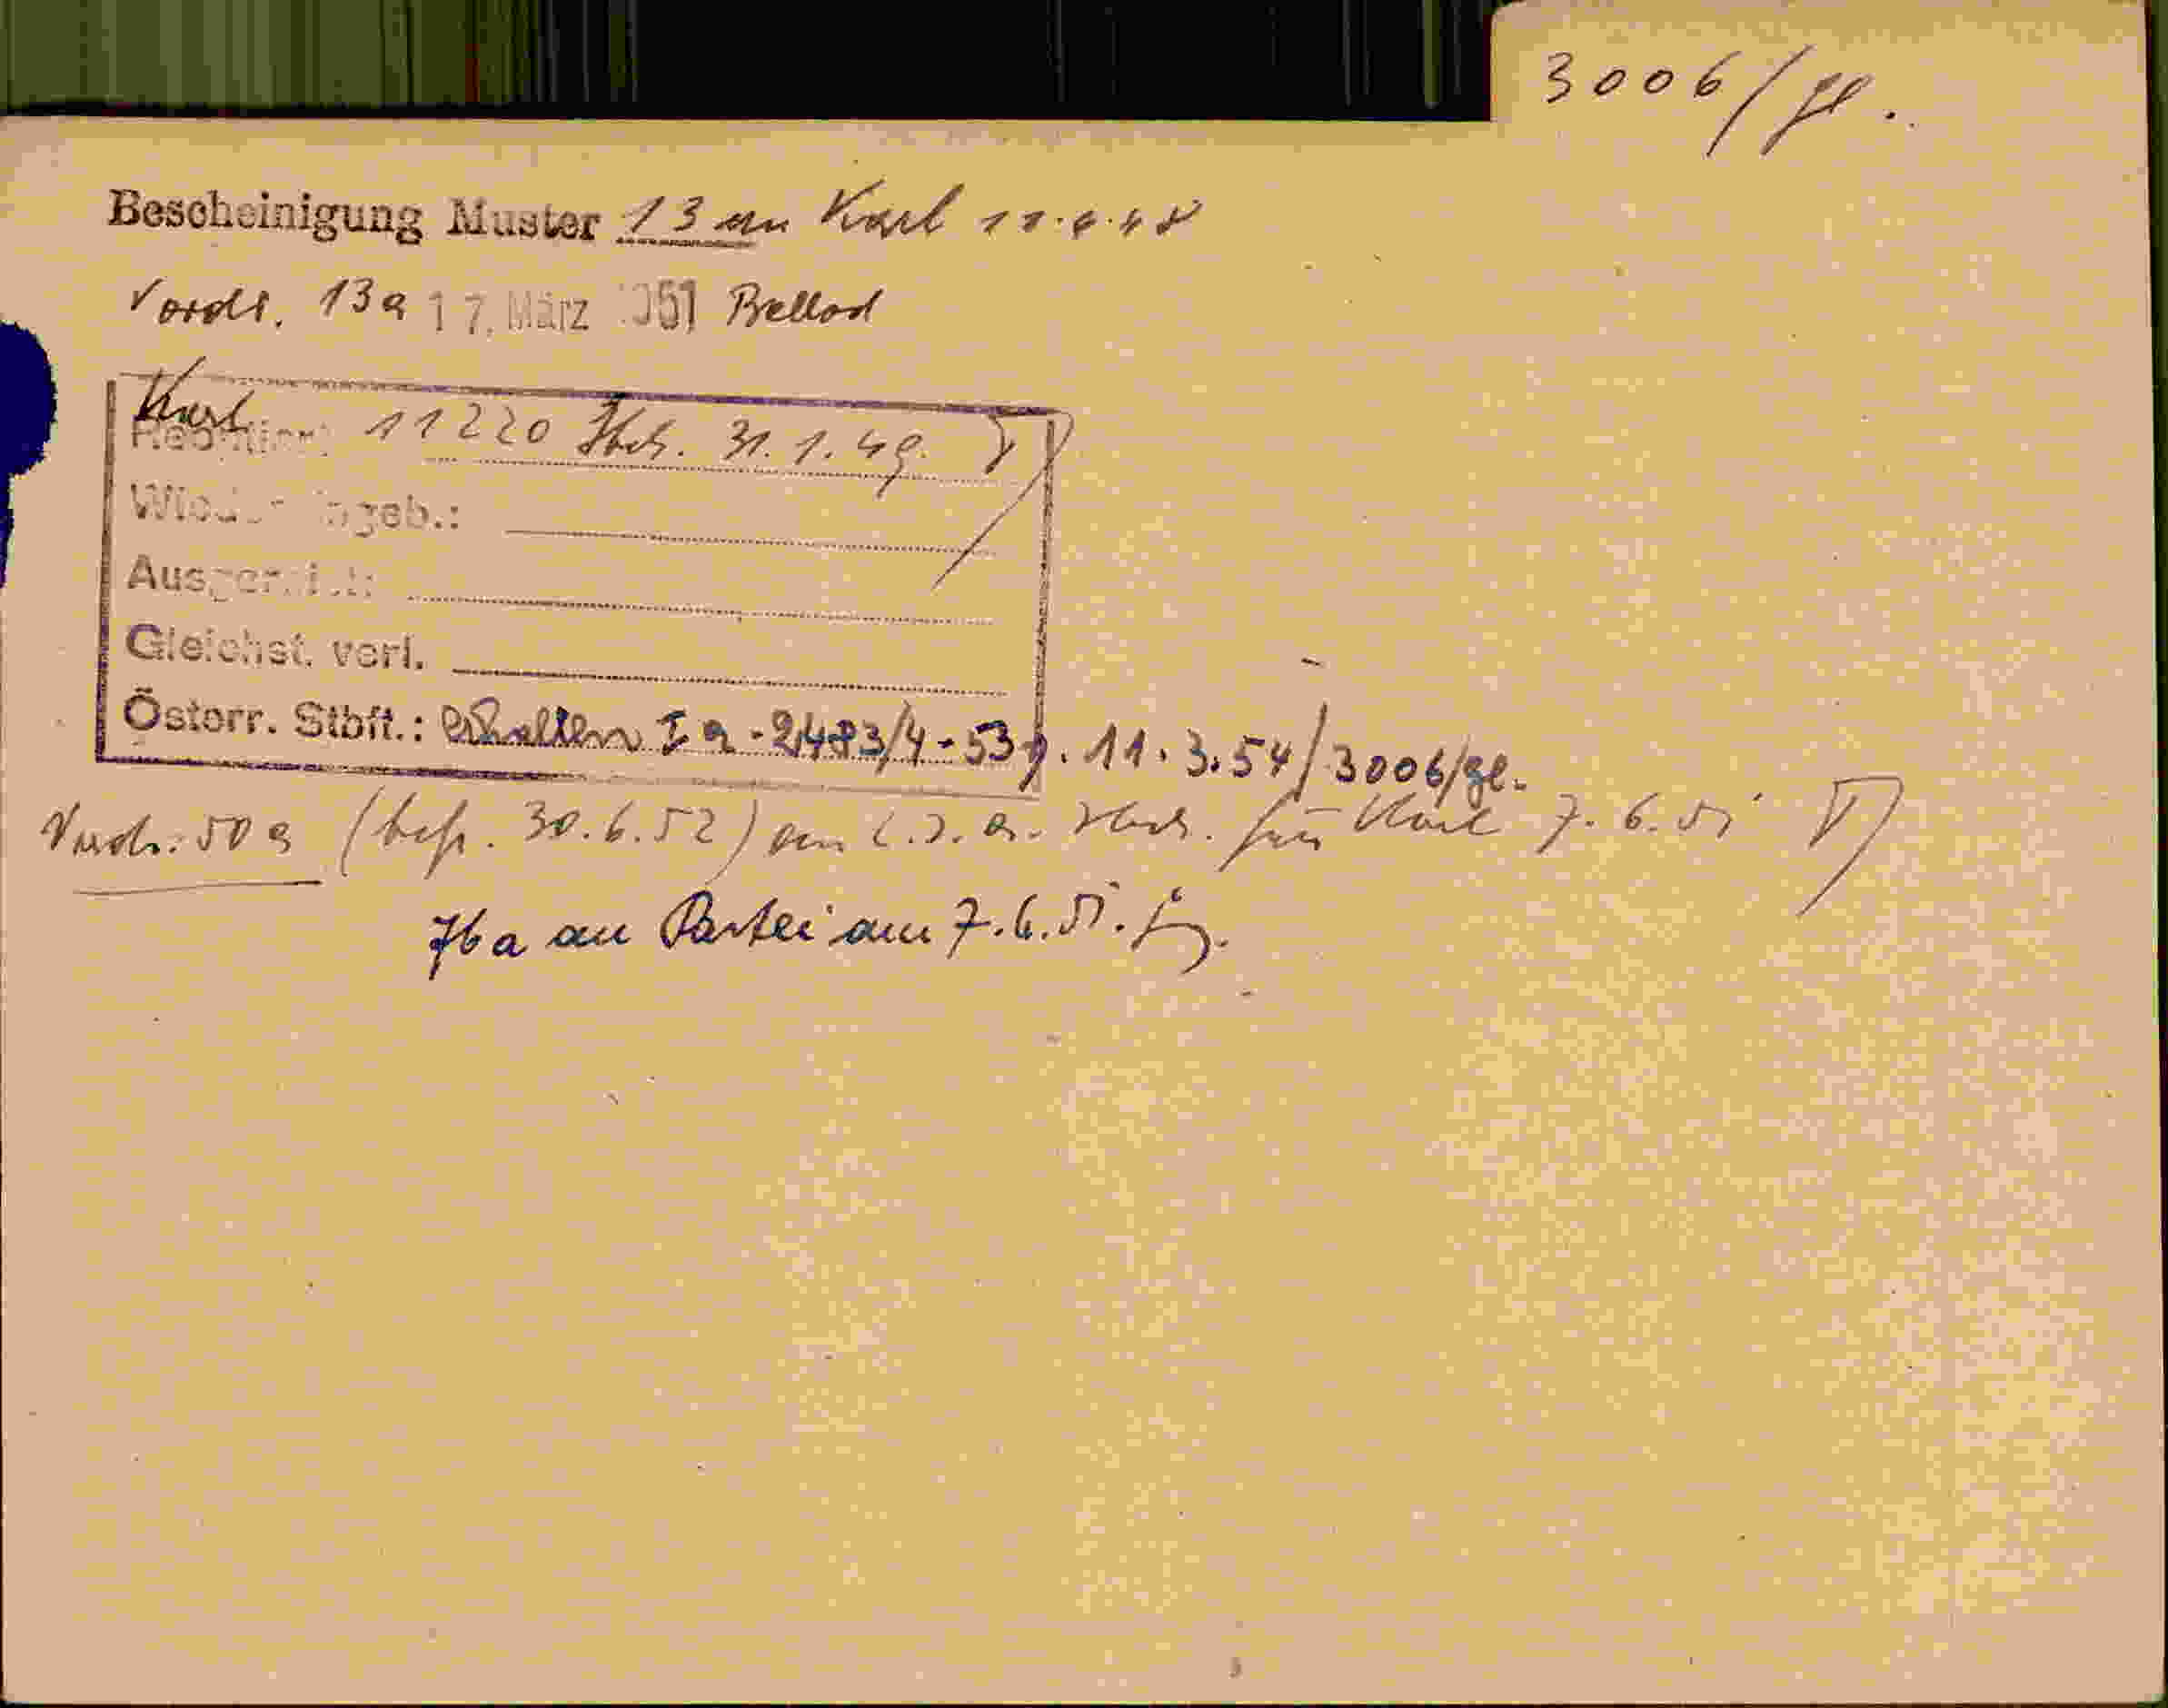 3006/gl.
Bescheinigung Muster 13 an Karl 11.6.48
Vordr. 13a 17. März 1951
Karl 11220 Ibk. 31.1.49.
Wiedereingeb.:
Ausgereist:
Gleichst. verl.
Österr. Stbft.: erhalten Ia-2483/4-53 v. 11.3.54/3006/gl.
Vordr. 50a (bef. 30.6.52) an Ibk. für Karl 7.6.51
76a an Partei am 7.6.51.